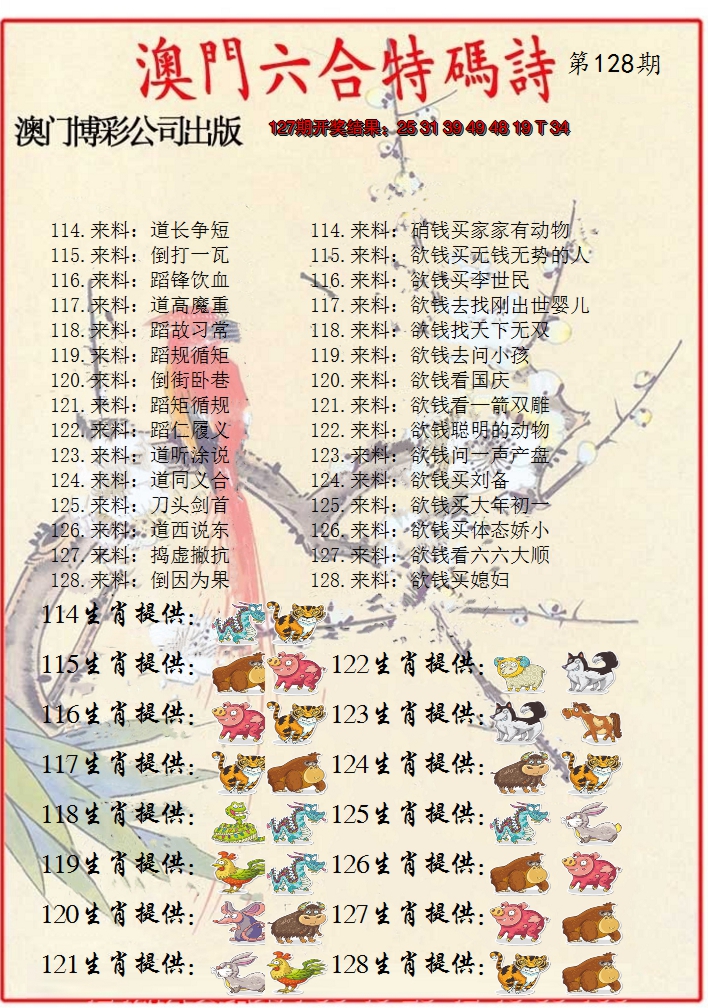 澳門六合特碼詩 第128期
澳门博彩公司出版 127期开奖结果：25 31 39 49 48 19 T 34
114.来料：道长争短 114.来料：硝钱买家家有动物
115.来料：倒打一瓦 115.来料：欲钱买无钱无势的人
116.来料：蹈锋饮血 116.来料：欲钱买李世民
117.来料：道高魔重 117.来料：欲钱去找刚出世婴儿
118.来料：蹈故习常 118.来料：欲钱找天下无双
119.来料：蹈规循矩 119.来料：欲钱去问小孩
120.来料：倒街卧巷 120.来料：欲钱看国庆
121.来料：蹈矩循规 121.来料：欲钱看一箭双雕
122.来料：蹈仁履义 122.来料：欲钱聪明的动物
123.来料：道听涂说 123.来料：欲钱问一声产盘
124.来料：道同义合 124.来料：欲钱买刘备
125.来料：刀头剑首 125.来料：欲钱买大年初一
126.来料：道西说东 126.来料：欲钱买体态娇小
127.来料：捣虚撇抗 127.来料：欲钱看六六大顺
128.来料：倒因为果 128.来料：欲钱买媳妇
114生肖提供：
115生肖提供： 122生肖提供：
116生肖提供： 123生肖提供：
117生肖提供： 124生肖提供：
118生肖提供： 125生肖提供：
119生肖提供： 126生肖提供：
120生肖提供： 127生肖提供：
121生肖提供： 128生肖提供：